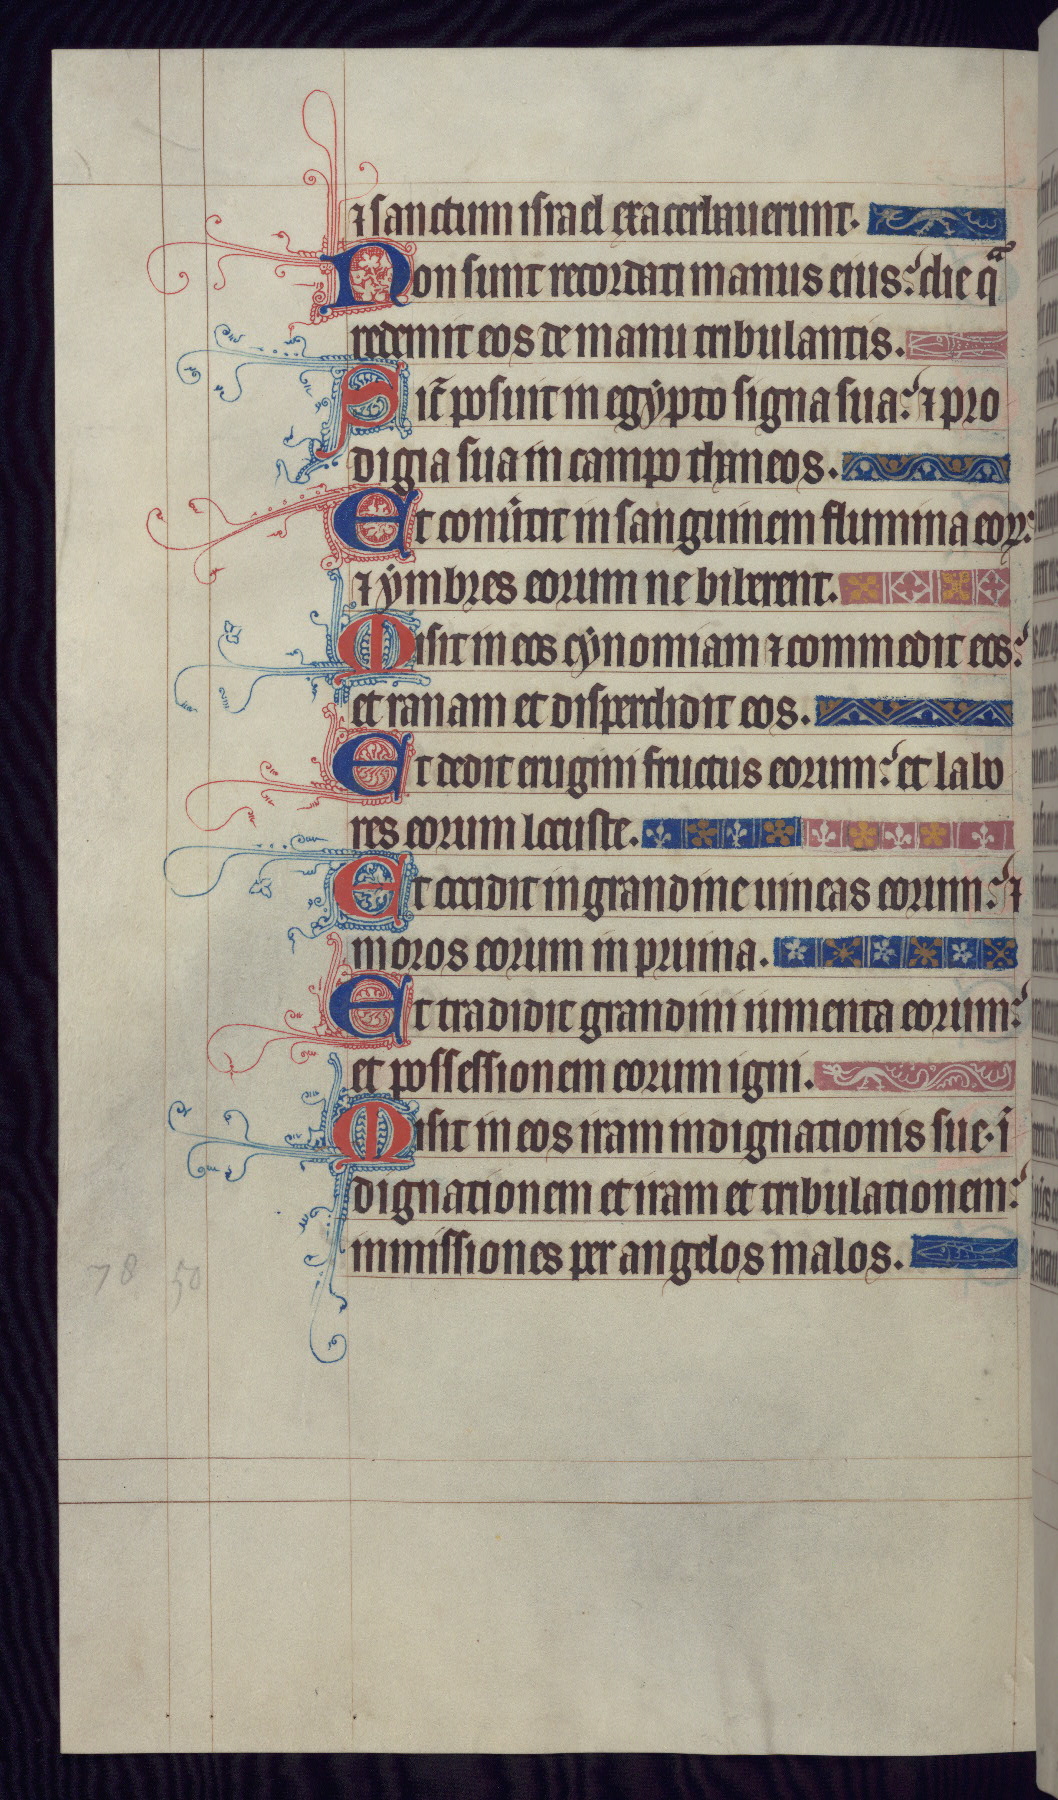 ⁊ sanctum israel exacerbauerunt.
Non sunt recordati manus eius: die qͣ
redemit eos de manu tribulantis.
Sic̄ posuit in egẏpto signa sua: ⁊ pro
digia sua in campo thaneos.
Et conu̾tit in sanguinem flumina eoꝝ:
⁊ ẏmbres eorum ne biberent.
Misit in eos cẏnomiam ⁊ commedit eos:
et ranam et disperdidit eos.
Et dedit erugini fructus eorum: et labo
res eorum locuste.
Et occidit in grandine uineas eorum: ⁊
moros eorum in pruina.
Et tradidit grandini iumenta eorum:
et possessionem eorum igni.
Misit in eos iram indignationis sue. ī
dignationem et iram et tribulationem:
inmissiones per angelos malos.
78 50